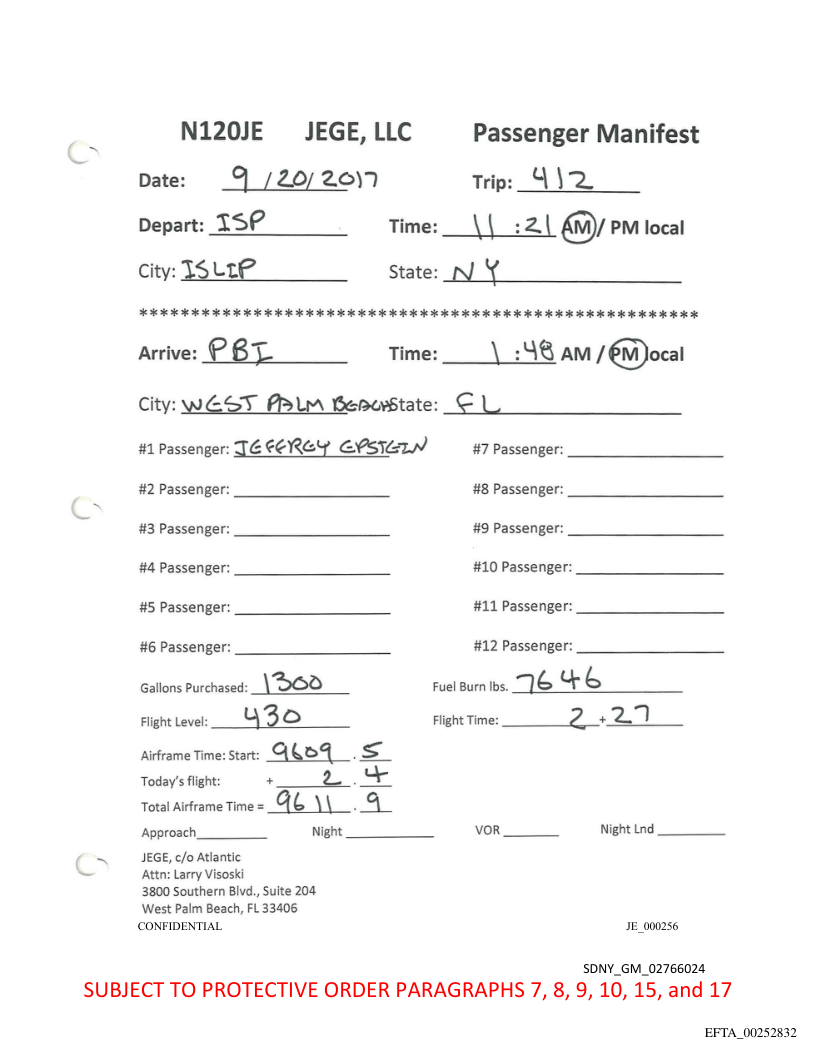 N120JE JEGE, LLC Passenger Manifest
Date: 9/20/2017 Trip: 412
Depart: ISP Time: 11:21 AM / PM local
City: ISLIP State: NY
******************************************************
Arrive: PBI Time: 1:48 AM / PM local
City: WEST PALM BEACH State: FL
#1 Passenger: JEFFREY EPSTEIN #7 Passenger:
#2 Passenger: #8 Passenger:
#3 Passenger: #9 Passenger:
#4 Passenger: #10 Passenger:
#5 Passenger: #11 Passenger:
#6 Passenger: #12 Passenger:
Gallons Purchased: 1300 Fuel Burn lbs. 7646
Flight Level: 430 Flight Time: 2 + 27
Airframe Time: Start: 9609 . 5
Today's flight: + 2 . 4
Total Airframe Time = 9611 . 9
Approach Night VOR Night Lnd
JEGE, c/o Atlantic
Attn: Larry Visoski
3800 Southern Blvd., Suite 204
West Palm Beach, FL 33406
CONFIDENTIAL JE_000256
SDNY_GM_02766024
SUBJECT TO PROTECTIVE ORDER PARAGRAPHS 7, 8, 9, 10, 15, and 17
EFTA_00252832